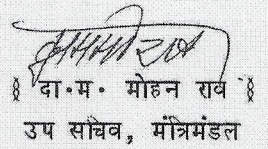 § दा·म· मोहन राव §
उप सचिव, मंत्रिमंडल